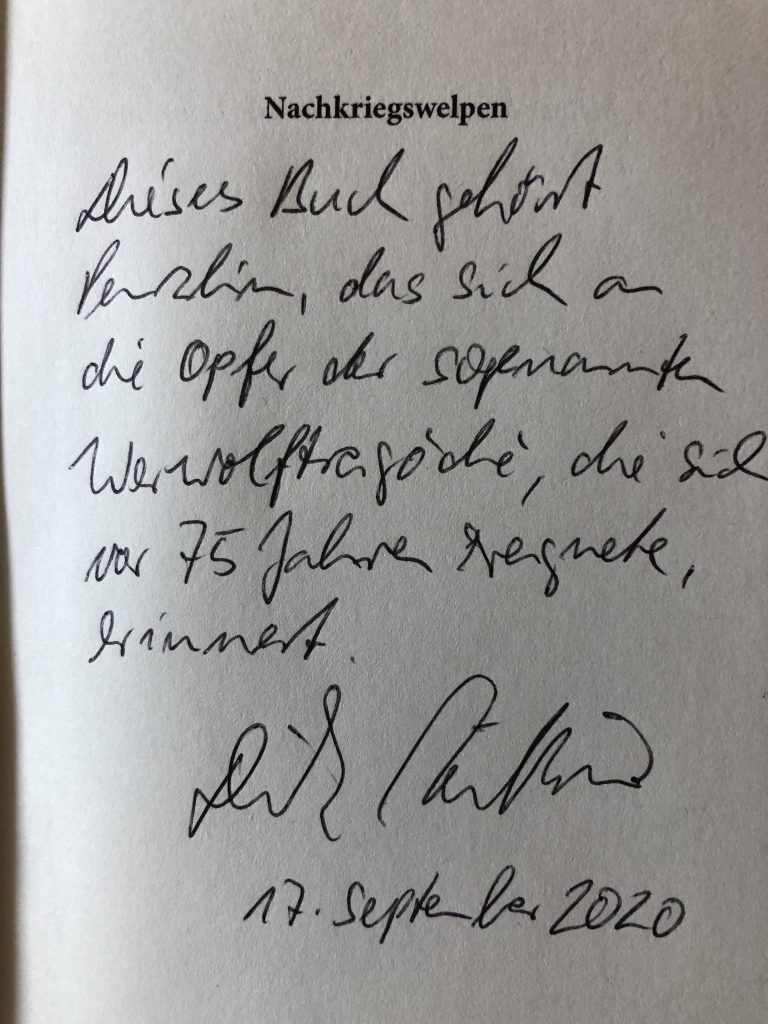 Nachkriegswelpen
Dieses Buch gehört
Penzlin, das sich an
die Opfer der sogenannten
Werwolftragödie, die sich
vor 75 Jahren ereignete,
erinnert.
17. September 2020